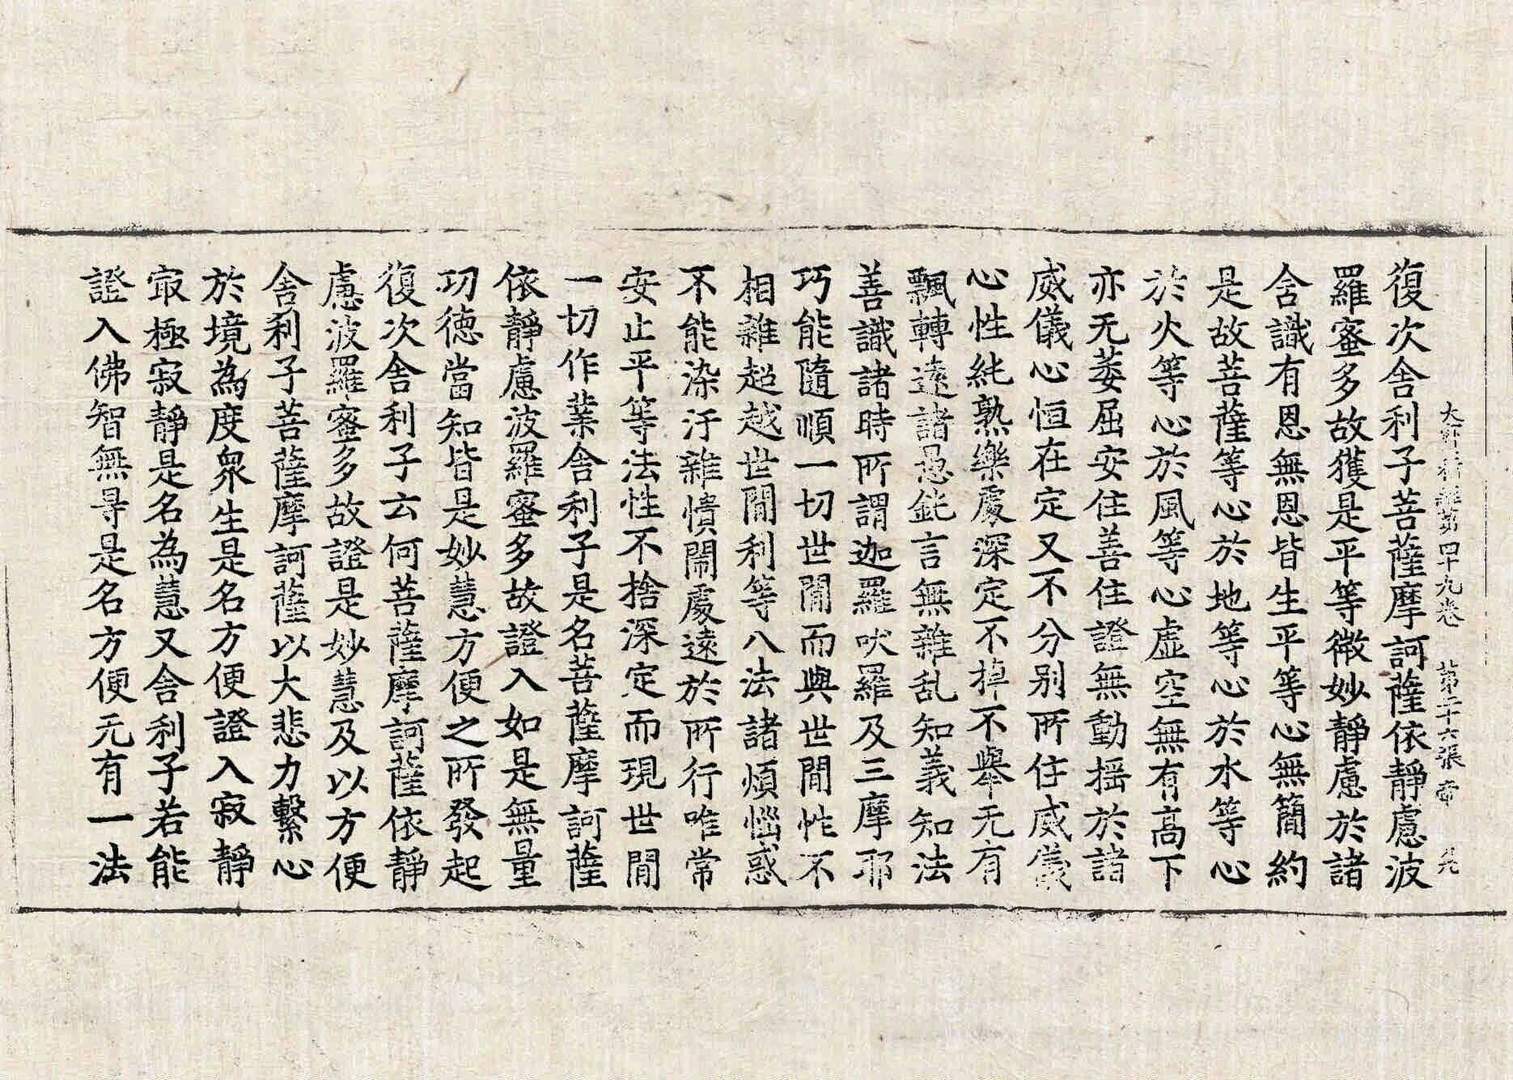 大寶積經第四十九卷　第二十六張　帝
復次舍利子菩薩摩訶薩依靜慮波
羅蜜多故獲是平等微妙靜慮於諸
含識有恩無恩皆生平等心無簡約
是故菩薩等心於地等心於水等心
於火等心於風等心虛空無有高下
亦无萎屈安住善住證無動揺於諸
威儀心恒在定又不分別所住威儀
心性純熟樂處深定不掉不舉无有
飄轉遠諸愚鈋言無雜乱知義知法
善識諸時所謂迦羅吠羅及三摩耶
巧能隨順一切世間而與世間性不
相雜超越世間利等八法諸煩惱惑
不能染汙雜憒閙處遠於所行唯常
安止平等法性不捨深定而現世間
一切作業舍利子是名菩薩摩訶薩
依靜慮波羅蜜多故證入如是無量
功德當知皆是妙慧方便之所發起
復次舍利子云何菩薩摩訶薩依靜
慮波羅蜜多故證是妙慧及以方便
舍利子菩薩摩訶薩以大悲力繫心
於境為度衆生是名方便證入寂靜
冣極寂靜是名為慧又舍利子若能
證入佛智無㝵是名方便无有一法